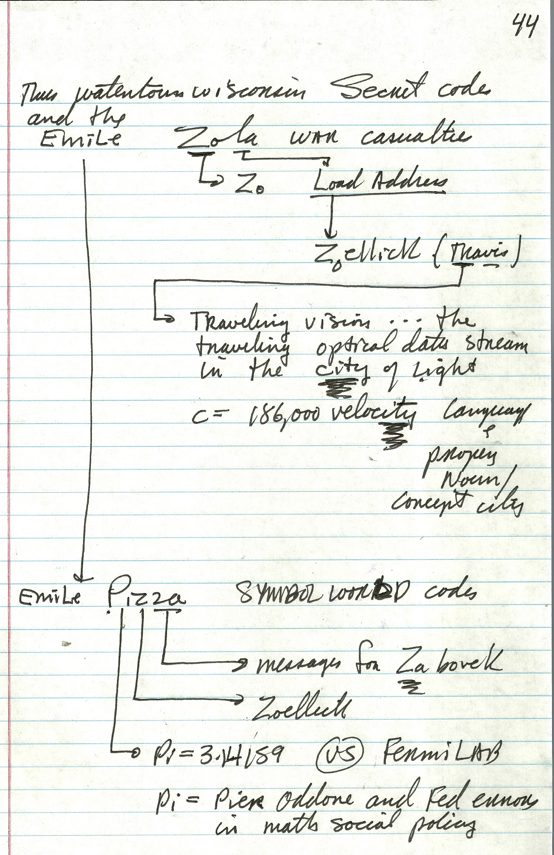 44
Thus watentous wisconsin Secret codes
and the
Emile Zola war casualties
Zo Load Address
Zoellick (Travis)
Traveling vision ... the
traveling optical data stream
in the city of Light
c = 186,000 velocity Language
proper
Noun/
Concept city
Emile Pizza SYMBOL WORLD codes
messages for Zabovek
Zoellick
Pi = 3.14159 (US) FermiLAB
Pi = Pier Oddone and Fed errors
in math social policy